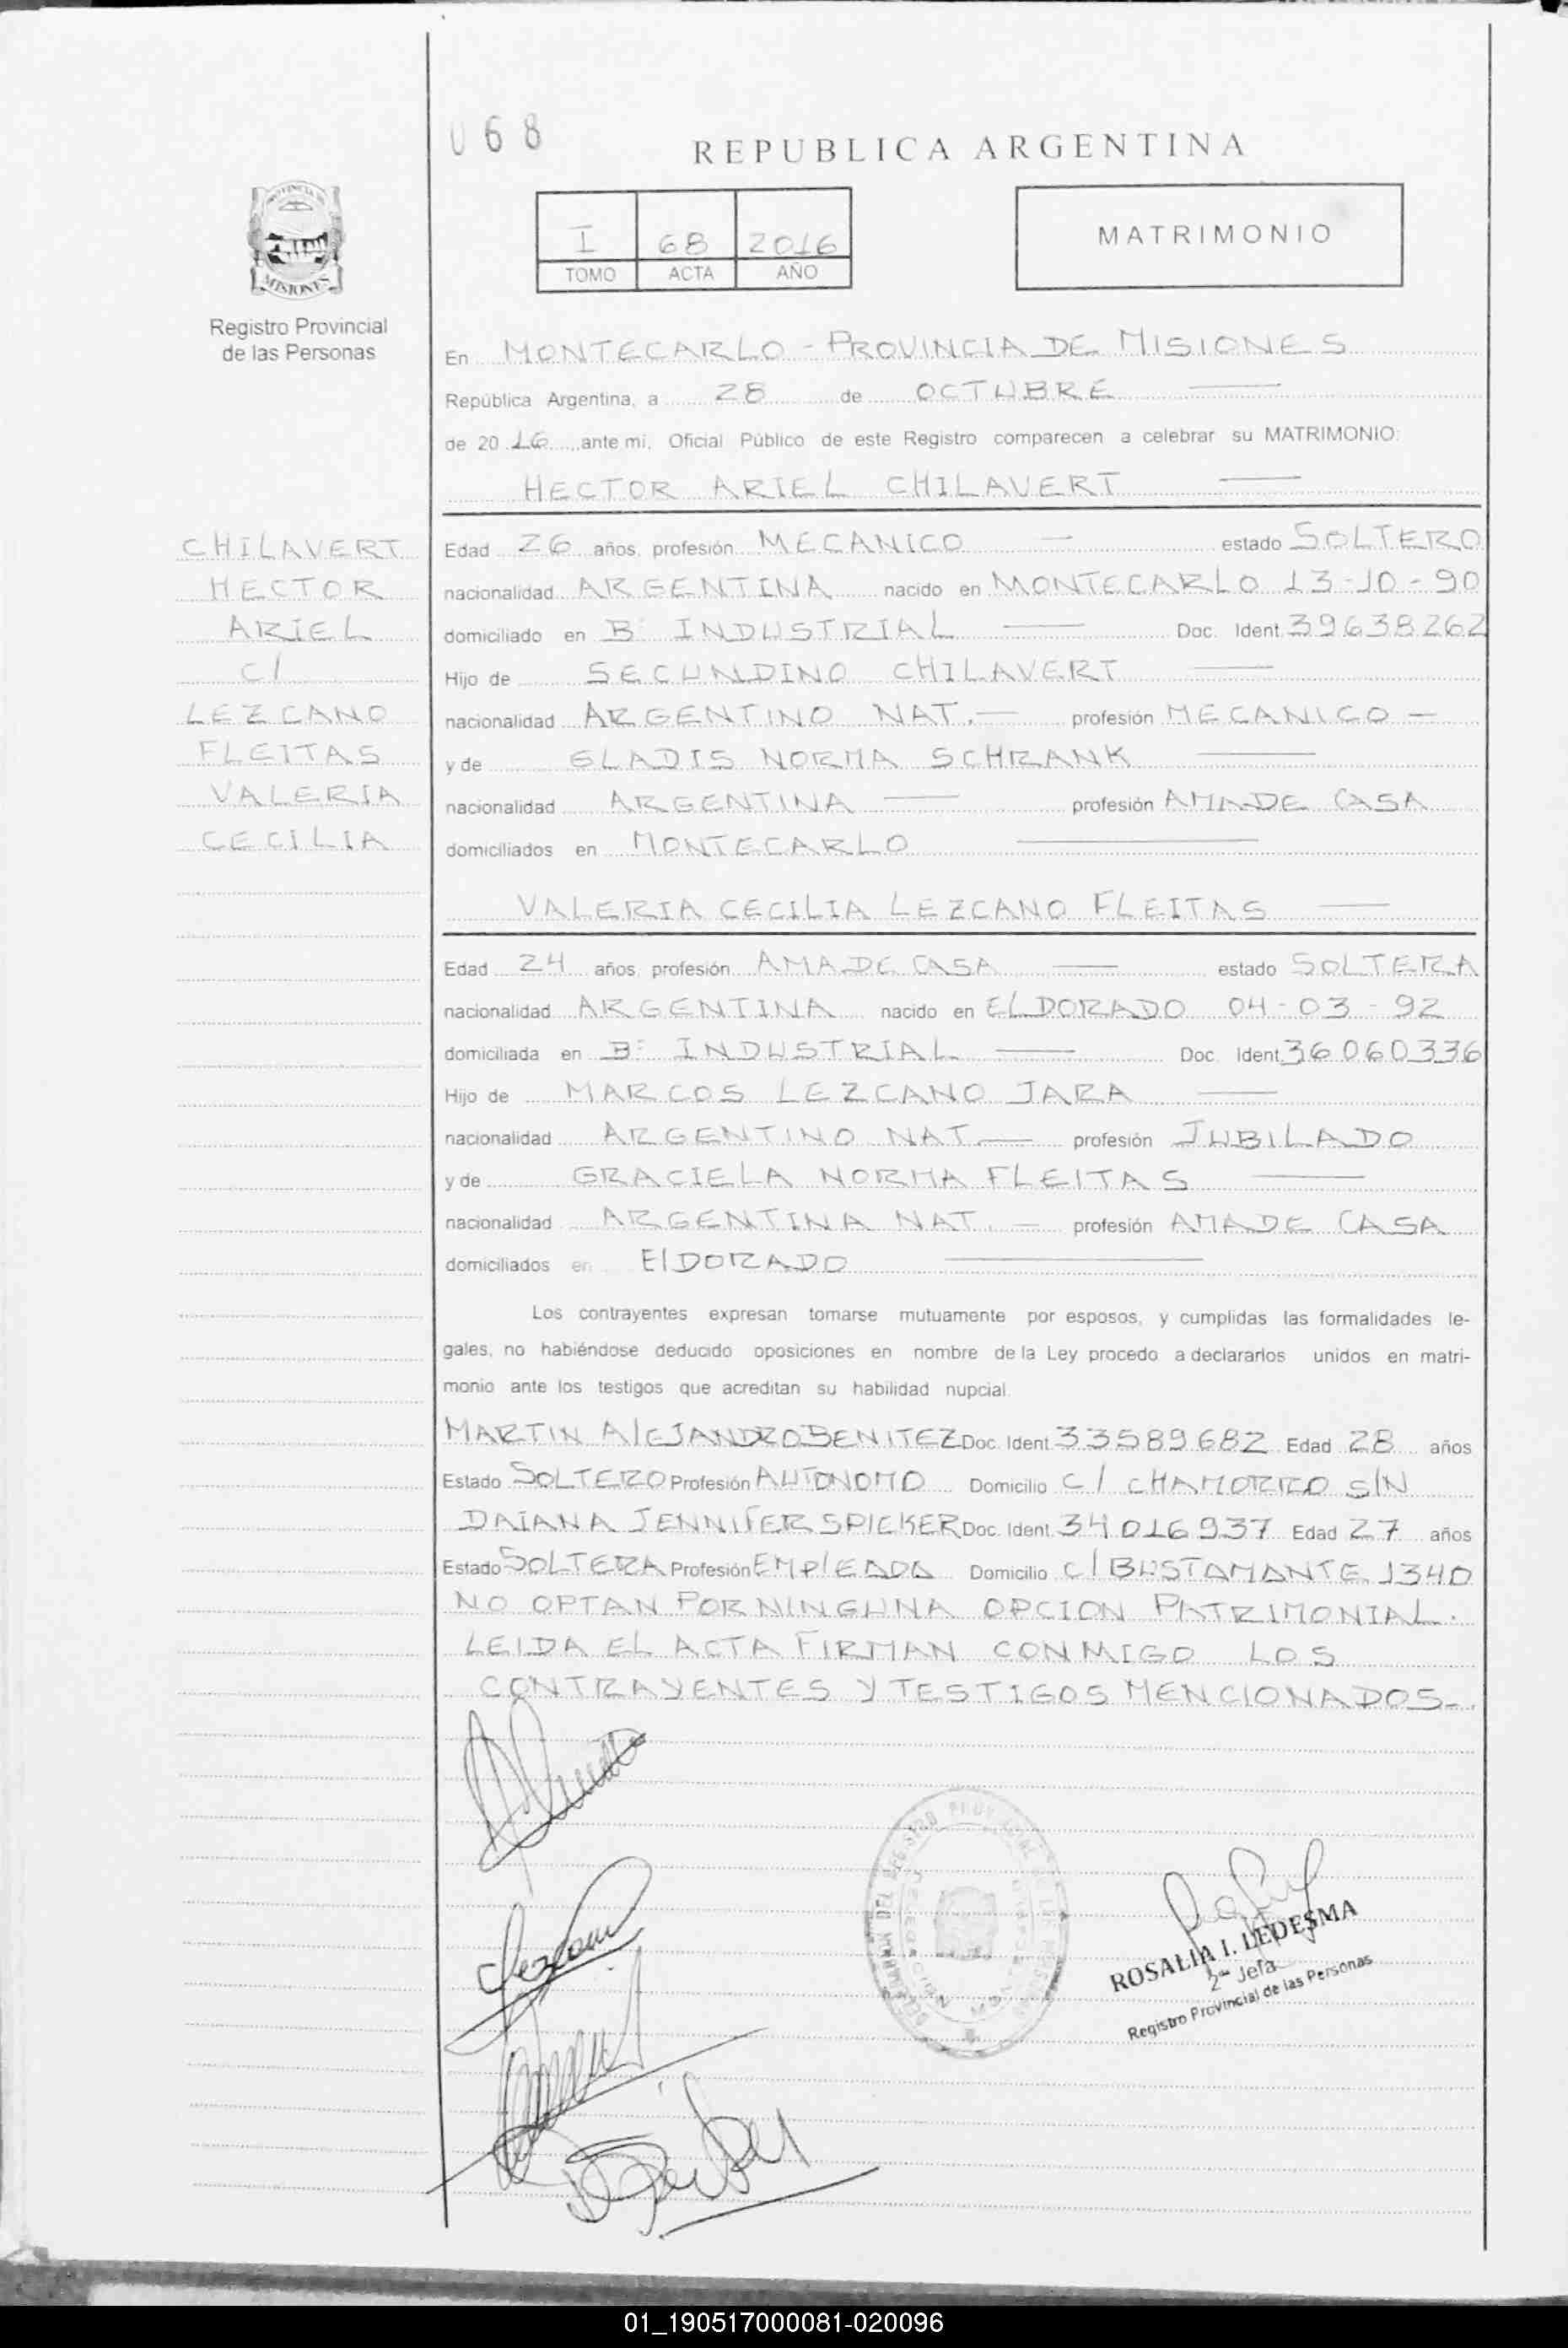 068
REPUBLICA ARGENTINA
I 68 2016
TOMO ACTA AÑO
MATRIMONIO
PROVINCIA DE
MISIONES
Registro Provincial
de las Personas
En MONTECARLO - PROVINCIA DE MISIONES
República Argentina, a 28 de OCTUBRE
de 20 16 ante mi, Oficial Público de este Registro comparecen a celebrar su MATRIMONIO:
HECTOR ARIEL CHILAVERT
CHILAVERT
HECTOR
ARIEL
c/
LEZCANO
FLEITAS
VALERIA
CECILIA
Edad 26 años, profesión MECANICO — estado SOLTERO
nacionalidad ARGENTINA nacido en MONTECARLO 13-10-90
domiciliado en Bº INDUSTRIAL — Doc. Ident. 39638262
Hijo de SECUNDINO CHILAVERT —
nacionalidad ARGENTINO NAT. — profesión MECANICO —
y de GLADIS NORMA SCHRANK —
nacionalidad ARGENTINA — profesión AMA DE CASA
domiciliados en MONTECARLO —
VALERIA CECILIA LEZCANO FLEITAS —
Edad 24 años, profesión AMA DE CASA — estado SOLTERA
nacionalidad ARGENTINA nacido en ELDORADO 04-03-92
domiciliada en Bº INDUSTRIAL — Doc. Ident. 36060336
Hijo de MARCOS LEZCANO JARA —
nacionalidad ARGENTINO NAT. — profesión JUBILADO
y de GRACIELA NORMA FLEITAS —
nacionalidad ARGENTINA NAT. — profesión AMA DE CASA
domiciliados en ElDORADO —
Los contrayentes expresan tomarse mutuamente por esposos, y cumplidas las formalidades le-
gales, no habiéndose deducido oposiciones en nombre de la Ley procedo a declararlos unidos en matri-
monio ante los testigos que acreditan su habilidad nupcial.
MARTIN AlEJANDRO BENITEZ Doc. Ident. 33589682 Edad 28 años
Estado SOLTERO Profesión AUTONOMO Domicilio C/ CHAMORRO S/N
DAIANA JENNIFER SPIEKER Doc. Ident. 34016937 Edad 27 años
Estado SOLTERA Profesión EMPlEADA Domicilio C/ BUSTAMANTE 1340
NO OPTAN POR NINGUNA OPCION PATRIMONIAL.
LEIDA EL ACTA FIRMAN CONMIGO LOS
CONTRAYENTES Y TESTIGOS MENCIONADOS-.
Lezcano
ROSALIA I. LEDESMA
2da Jefa
Registro Provincial de las Personas
01_190517000081-020096